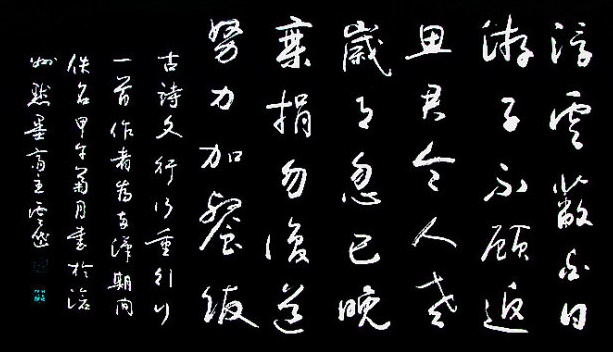 浮雲蔽白日
游子不顧返
思君令人老
歲月忽已晚
棄捐勿復道
努力加餐飯
古詩文行行重行行
一首作者為東漢期間
佚名甲午菊月書於滄
州墨齋主雲